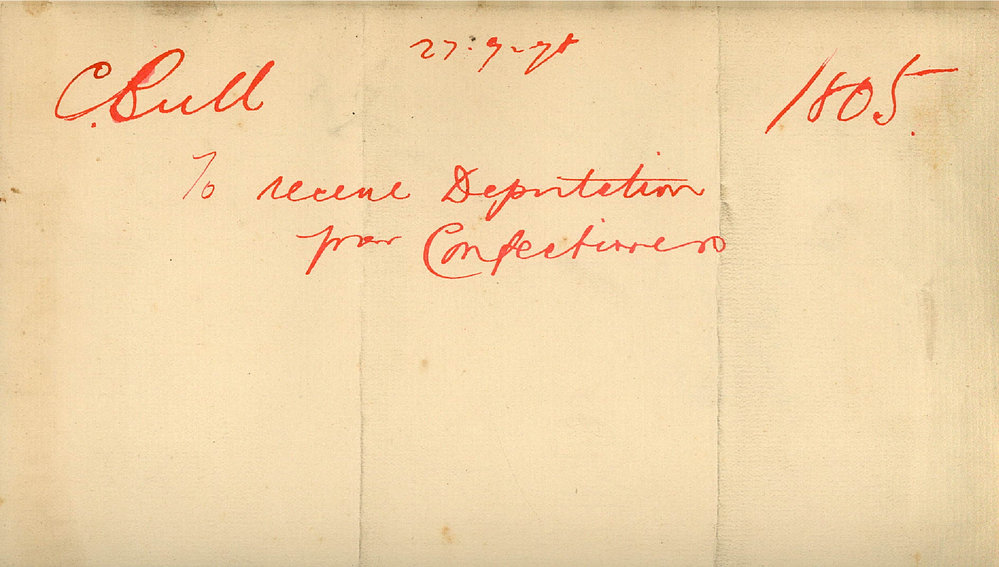 27.9-78
C. Bull
1805.
To receive Deputation
from Confectioners